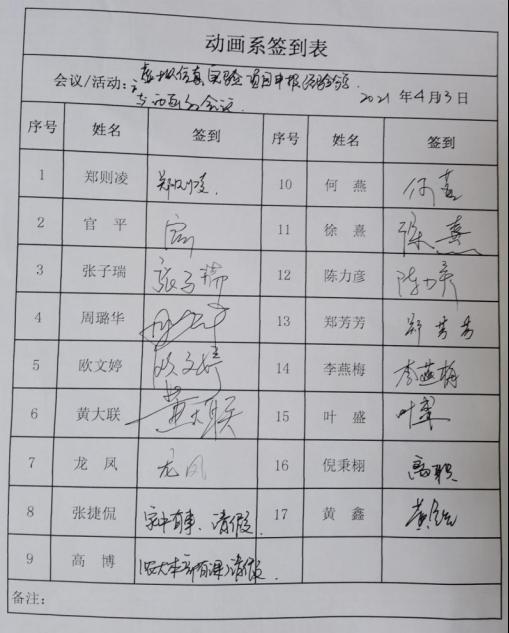 动画系签到表
会议/活动: 虚拟仿真实验项目申报经验分享
会议 2021 年4月3日
序号 姓名 签到 序号 姓名 签到
1 郑则凌 郑则凌 10 何 燕 何燕
2 官 平 11 徐 熹 徐熹
3 张子瑞 张子瑞 12 陈力彦 陈力彦
4 周璐华 13 郑芳芳 郑芳芳
5 欧文婷 欧文婷 14 李燕梅 李燕梅
6 黄大联 黄大联 15 叶 盛 叶盛
7 龙 凤 龙凤 16 倪秉栩 离职
8 张捷侃 家中有事、请假 17 黄 鑫 黄鑫
9 高 博 请假
备注: